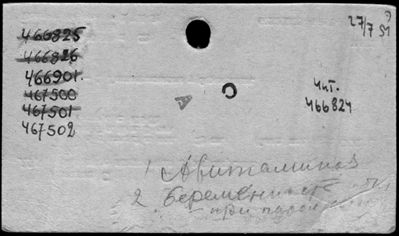 27/7 51
466825
466826
466901.
467500
467501
467502
Чит.
466824
1 Авитаминоз
2 беременность
при